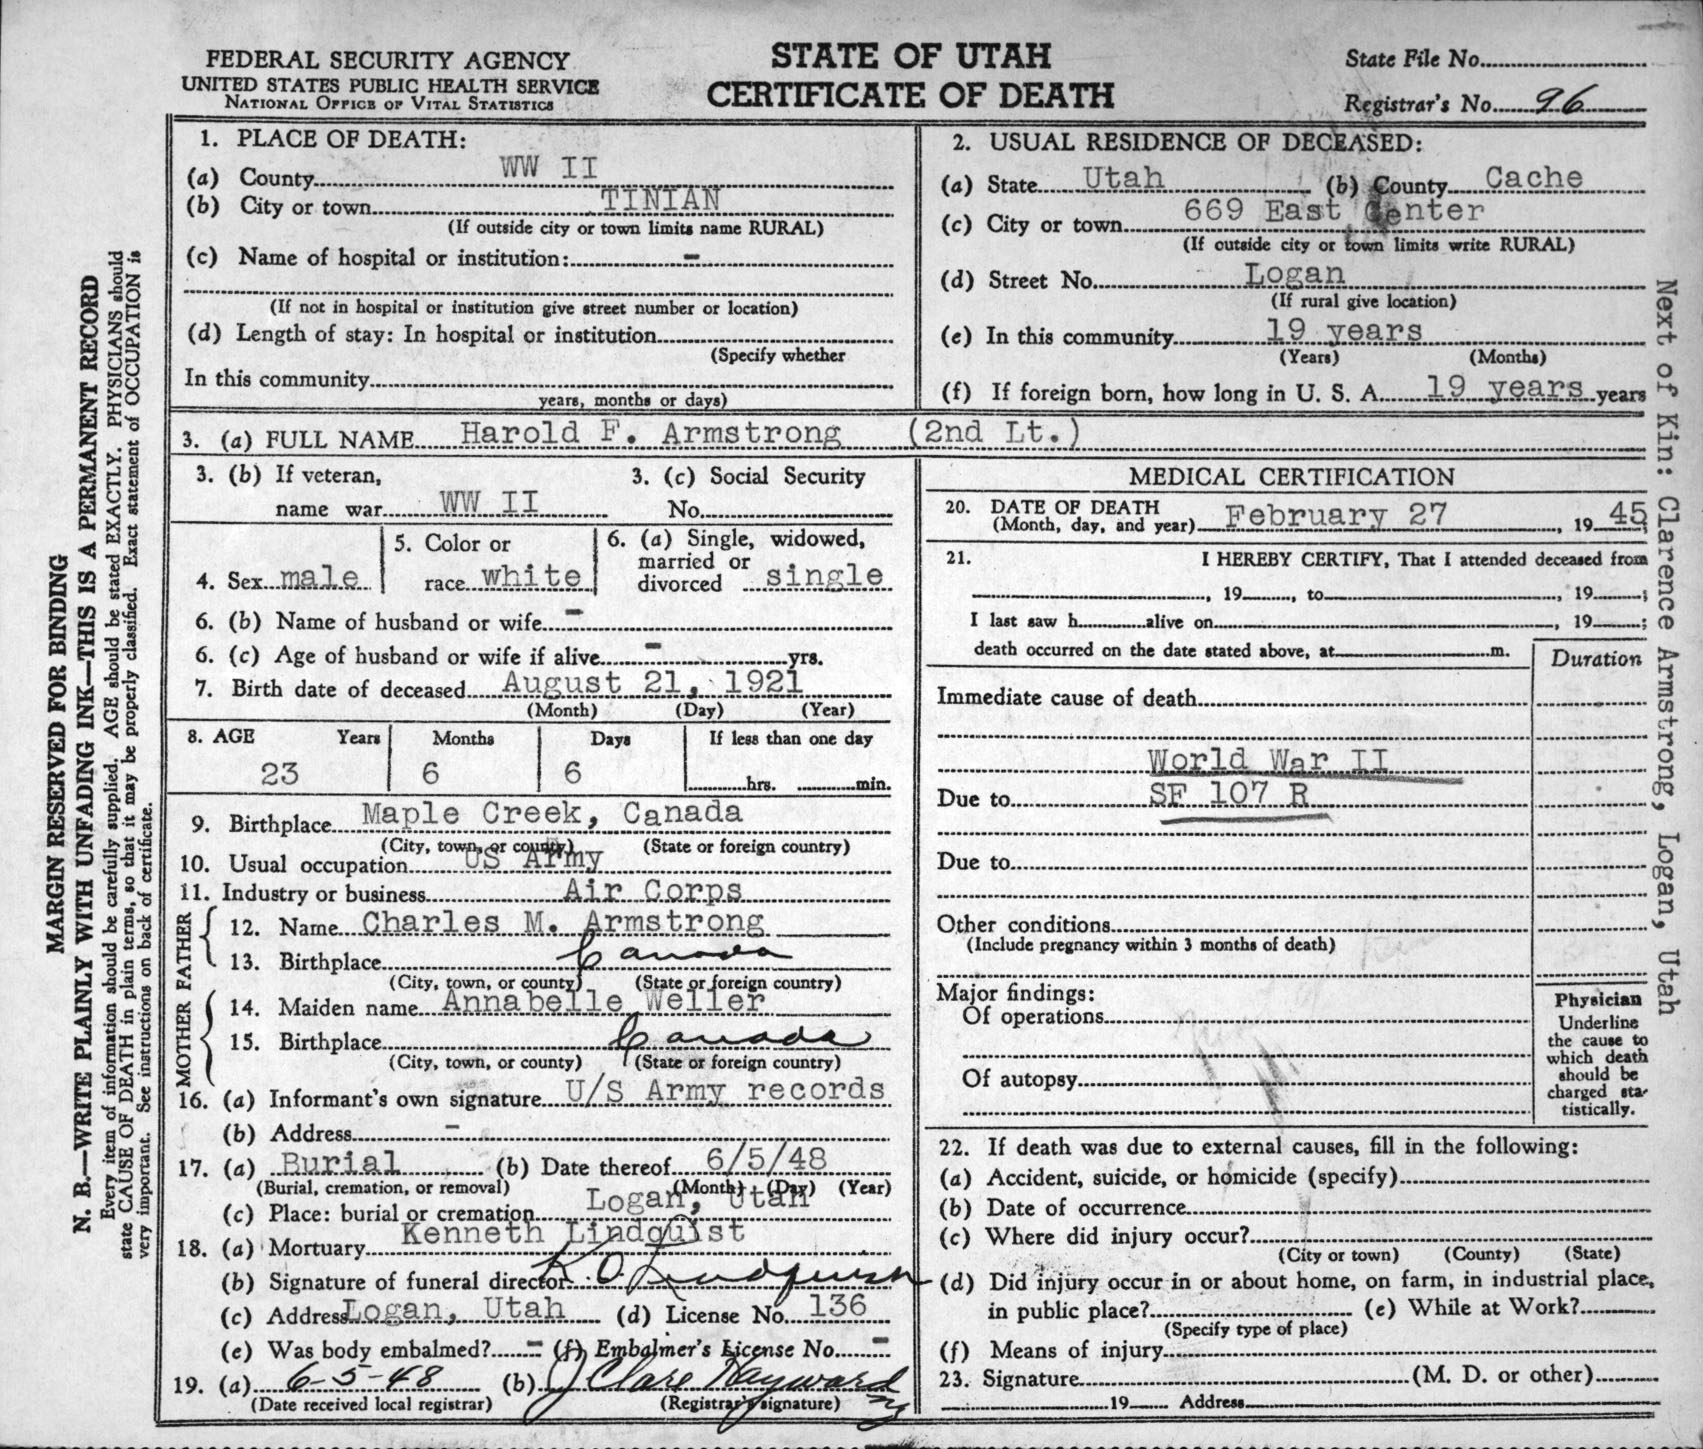 FEDERAL SECURITY AGENCY
UNITED STATES PUBLIC HEALTH SERVICE
NATIONAL OFFICE OF VITAL STATISTICS
STATE OF UTAH
CERTIFICATE OF DEATH
State File No.
Registrar's No. 96
MARGIN RESERVED FOR BINDING
N. B.—WRITE PLAINLY WITH UNFADING INK—THIS IS A PERMANENT RECORD
Every item of information should be carefully supplied. AGE should be stated EXACTLY. PHYSICIANS should
state CAUSE OF DEATH in plain terms, so that it may be properly classified. Exact statement of OCCUPATION is
very important. See instructions on back of certificate.
1. PLACE OF DEATH:
(a) County WW II
(b) City or town TINIAN
(If outside city or town limits name RURAL)
(c) Name of hospital or institution: -
(If not in hospital or institution give street number or location)
(d) Length of stay: In hospital or institution
(Specify whether
In this community
years, months or days)
2. USUAL RESIDENCE OF DECEASED:
(a) State Utah (b) County Cache
(c) City or town 669 East Center
(If outside city or town limits write RURAL)
(d) Street No. Logan
(If rural give location)
(e) In this community 19 years
(Years) (Months)
(f) If foreign born, how long in U. S. A. 19 years years
3. (a) FULL NAME Harold F. Armstrong (2nd Lt.)
3. (b) If veteran,
name war WW II
3. (c) Social Security
No.
4. Sex male
5. Color or
race white
6. (a) Single, widowed,
married or
divorced single
6. (b) Name of husband or wife -
6. (c) Age of husband or wife if alive - yrs.
7. Birth date of deceased August 21, 1921
(Month) (Day) (Year)
8. AGE Years Months Days If less than one day
23 6 6 hrs. min.
9. Birthplace Maple Creek, Canada
(City, town, or county) (State or foreign country)
10. Usual occupation US Army
11. Industry or business Air Corps
FATHER
12. Name Charles M. Armstrong
13. Birthplace Canada
(City, town, or county) (State or foreign country)
MOTHER
14. Maiden name Annabelle Weller
15. Birthplace Canada
(City, town, or county) (State or foreign country)
16. (a) Informant's own signature U/S Army records
(b) Address -
17. (a) Burial (b) Date thereof 6/5/48
(Burial, cremation, or removal) (Month) (Day) (Year)
(c) Place: burial or cremation Logan, Utah
18. (a) Mortuary Kenneth Lindquist
(b) Signature of funeral director K O Lindquist
(c) Address Logan, Utah (d) License No. 136
(e) Was body embalmed? - (f) Embalmer's License No. -
19. (a) 6-5-48 (b) J Clare Hayward
(Date received local registrar) (Registrar's signature)
MEDICAL CERTIFICATION
20. DATE OF DEATH
(Month, day, and year) February 27, 1945
21. I HEREBY CERTIFY, That I attended deceased from
, 19 , to , 19 ;
I last saw h alive on , 19 ;
death occurred on the date stated above, at m.
Duration
Immediate cause of death
World War II
Due to SF 107 R
Due to
Other conditions
(Include pregnancy within 3 months of death)
Major findings:
Of operations
Of autopsy
Physician
Underline
the cause to
which death
should be
charged sta-
tistically.
22. If death was due to external causes, fill in the following:
(a) Accident, suicide, or homicide (specify)
(b) Date of occurrence
(c) Where did injury occur?
(City or town) (County) (State)
(d) Did injury occur in or about home, on farm, in industrial place,
in public place? (e) While at Work?
(Specify type of place)
(f) Means of injury
23. Signature (M. D. or other)
19 Address
Next of Kin: Clarence Armstrong, Logan, Utah